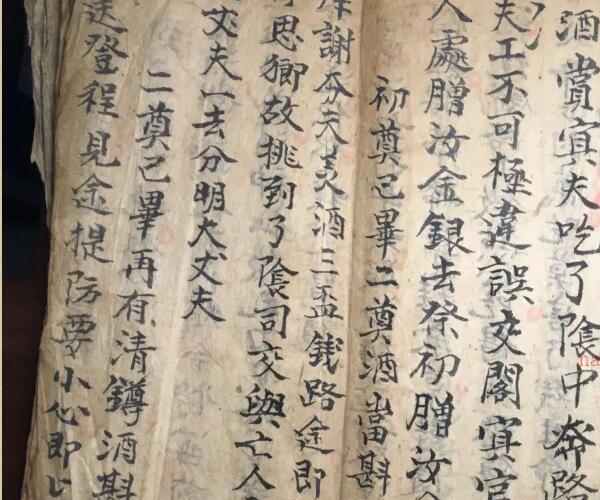 酒賞冥夫吃了陰中奔路
夫工不可極違誤交閣冥官
人處贈汝金銀去祭初贈汝
初奠已畢二奠酒當斟
謝夯夫酒三盃錢路途即
思鄉故挑到了陰司交與亡人
丈夫一去分明大丈夫
二奠已畢再有清鐏酒斟
送登程見途提防要小心即